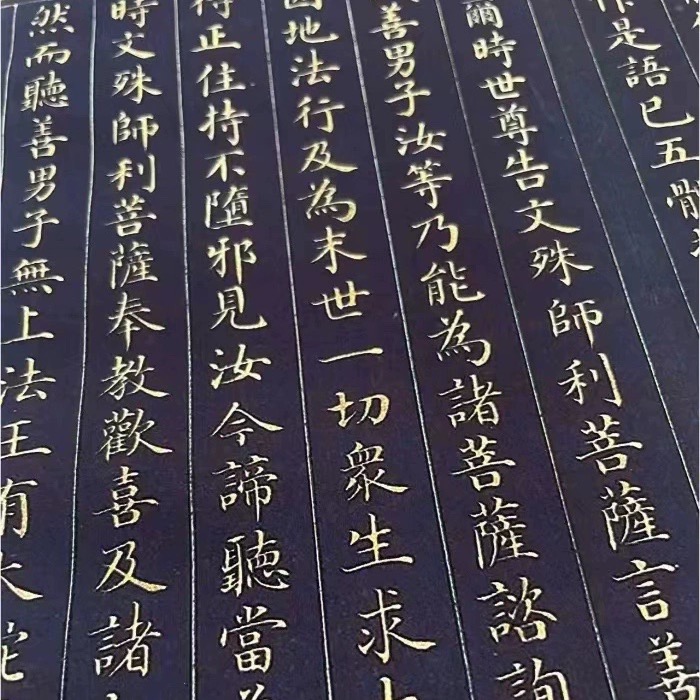 作是語已五體
爾時世尊告文殊師利菩薩言善
善男子汝等乃能為諸菩薩諮詢
因地法行及為末世一切眾生求大
得正住持不墮邪見汝今諦聽當
時文殊師利菩薩奉教歡喜及諸
然而聽善男子無上法王有大陀